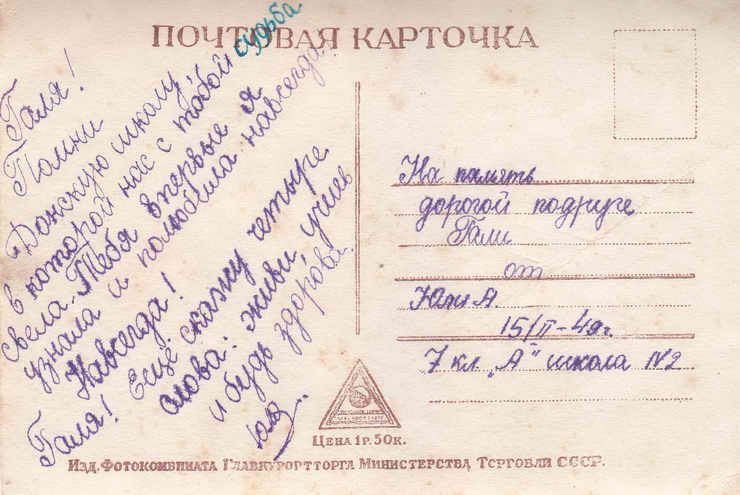 ПОЧТОВАЯ КАРТОЧКА
Галя!
Помни
Донскую школу,
в которой нас с тобой судьба
свела. Тебя впервые я
узнала и полюбила навсегда.
Навсегда!
Галя! Ещё скажу четыре
слова: живи, учись
и будь здорова.
Юля.
На память
дорогой подруге
Гали
от
Юли А.
15/II-49г.
7 кл „А" школа №2
ЦЕНА 1 Р. 50 К.
ИЗД. ФОТОКОМБИНАТА ГЛАВКУРОРТТОРГА МИНИСТЕРСТВА ТОРГОВЛИ СССР.